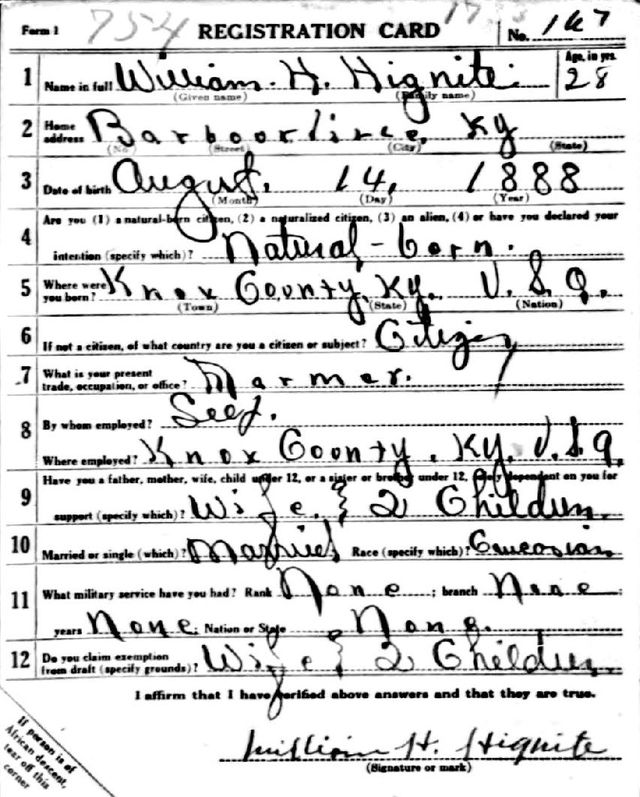 Form 1 754 REGISTRATION CARD 17 No. 167
1 Name in full William H. Hignite Age, in yrs. 28
(Given name) (Family name)
2 Home address Barboorvice, Ky
(No.) (Street) (City) (State)
3 Date of birth August. 14, 1888
(Month) (Day) (Year)
4 Are you (1) a natural-born citizen, (2) a naturalized citizen, (3) an alien, (4) or have you declared your
intention (specify which)? Natural-born.
5 Where were you born? Knox County, Ky. U.S.A.
(Town) (State) (Nation)
6 If not a citizen, of what country are you a citizen or subject? Citizen
7 What is your present trade, occupation, or office? Farmer.
8 By whom employed? Self.
Where employed? Knox County, Ky, U.S.A.
9 Have you a father, mother, wife, child under 12, or a sister or brother under 12, solely dependent on you for
support (specify which)? Wife & 2 Children.
10 Married or single (which)? Married Race (specify which)? Caucasian
11 What military service have you had? Rank None; branch None;
years None; Nation or State None.
12 Do you claim exemption from draft (specify grounds)? Wife & 2 Children.
I affirm that I have verified above answers and that they are true.
William H. Hignite
(Signature or mark)
If person is of
African descent,
tear off this
corner